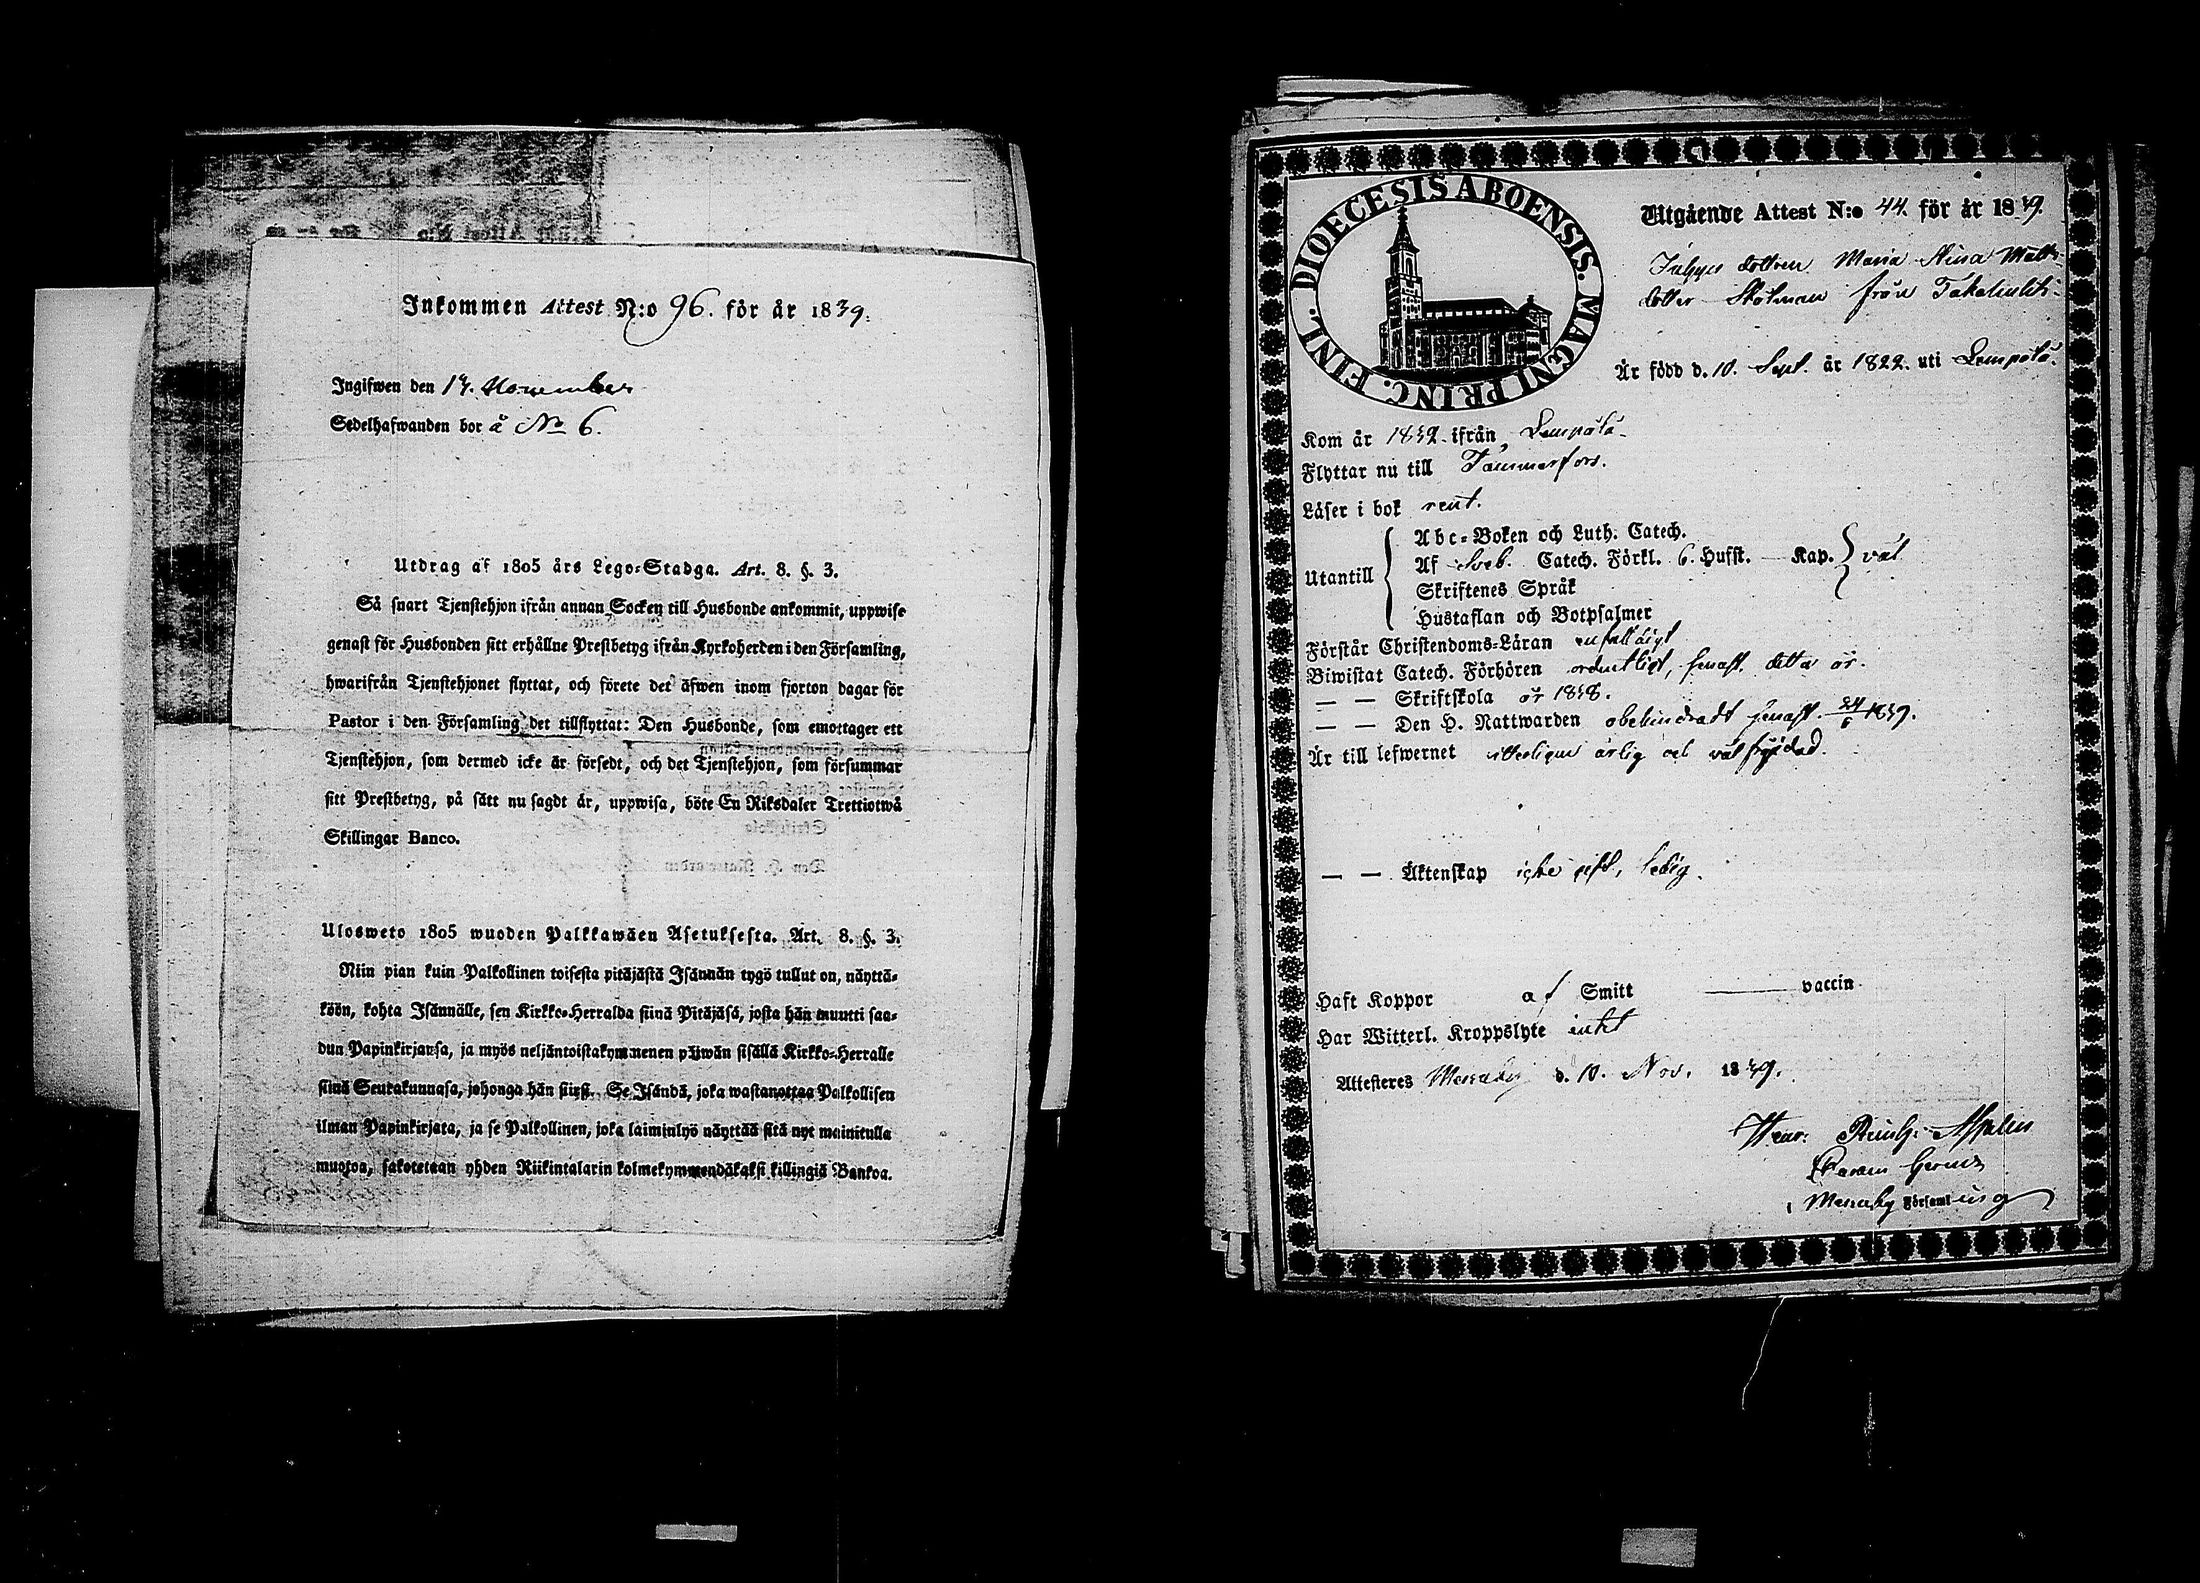 Inkommen Attest N:o 96. för år 1839.
Ingifwen den 14. November
Sedelhafwanden bor å No 6.
Utdrag af 1805 års Lego-Stadga. Art. 8. §. 3.
Så snart Tjenstehjon ifrån annan Socken till Husbonde ankommit, uppwise
genast för Husbonden sitt erhållne Prestbetyg ifrån Kyrkoherden i den Församling,
hwarifrån Tjenstehjonet flyttat, och förete det äfwen inom fjorton dagar för
Pastor i den Församling det tillflyttat: Den Husbonde, som emottager ett
Tjenstehjon, som dermed icke är försedt, och det Tjenstehjon, som försummar
sitt Prestbetyg, på sätt nu sagdt är, uppwisa, böte En Riksdaler Trettiotwå
Skillingar Banco.
Ulosweto 1805 wuoden Palkkawäen Asetuksesta. Art. 8. §. 3.
Niin pian kuin Palkollinen toisesta pitäjästä Isännän tygö tullut on, näyttä-
köön, kohta Isännälle, sen Kirkko-Herralda siinä Pitäjäsä, josta hän muutti saa-
dun Papinkirjansa, ja myös neljäntoistakymmenen päiwän sisällä Kirkko-Herralle
siinä Seurakunnasa, johonga hän siirsi. Se Isändä, joka wastanottaa Palkollisen
ilman Papinkirjata, ja se Palkollinen, joka laiminlyö näyttää sitä nyt mainitulla
muotoa, sakotetaan yhden Riikintalarin kolmekymmendäkaksi killingiä Bankoa.
DIOECESIS ABOENSIS. MAGNI PRINC. FINL.
Utgående Attest N:o 44. för år 1839.
dottren Maria Stina Matts-
dotter från
Är född d. 10. Sept. år 1822. uti Lempälä.
Kom år 1832. ifrån Lempälä
Flyttar nu till Tammerfors.
Läser i bok rent.
Utantill
Abc-Boken och Luth. Catech.
Af Sveb. Catech. Förkl. 6. Hufst. — Kap. väl
Skriftenes Språk
Hustaflan och Botpsalmer
Förstår Christendoms-Läran enfalldigt
Biwistat Catech. Förhören ordentligt, senast detta år.
— — Skriftskola år 1838.
— — Den H. Nattwarden obehindradt senast 24/6 1839.
Är till lefwernet itterligen ärlig och väl frejdad.
— — Äktenskap icke gift, ledig.
Haft Koppor af Smitt — vaccin
Har Witterl. Kroppslyte intet
Attesteres Messuby d. 10. Nov. 1839.
Messuby Församling